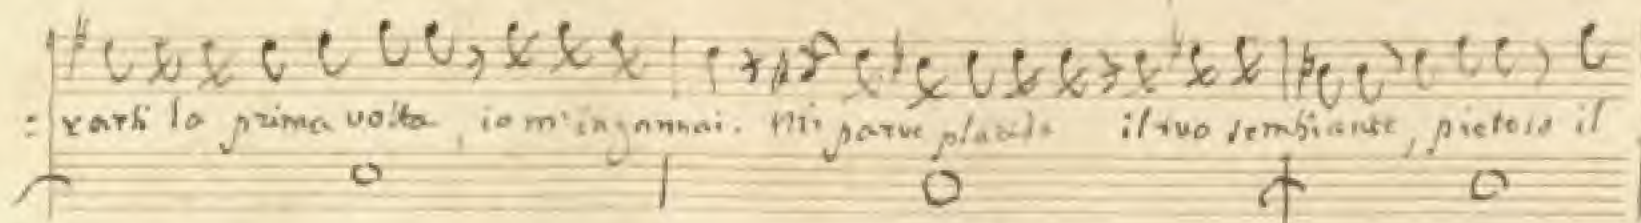 : rarti la prima volta, io m'ingannai. Mi parve placido il suo sembiante, pietoso il